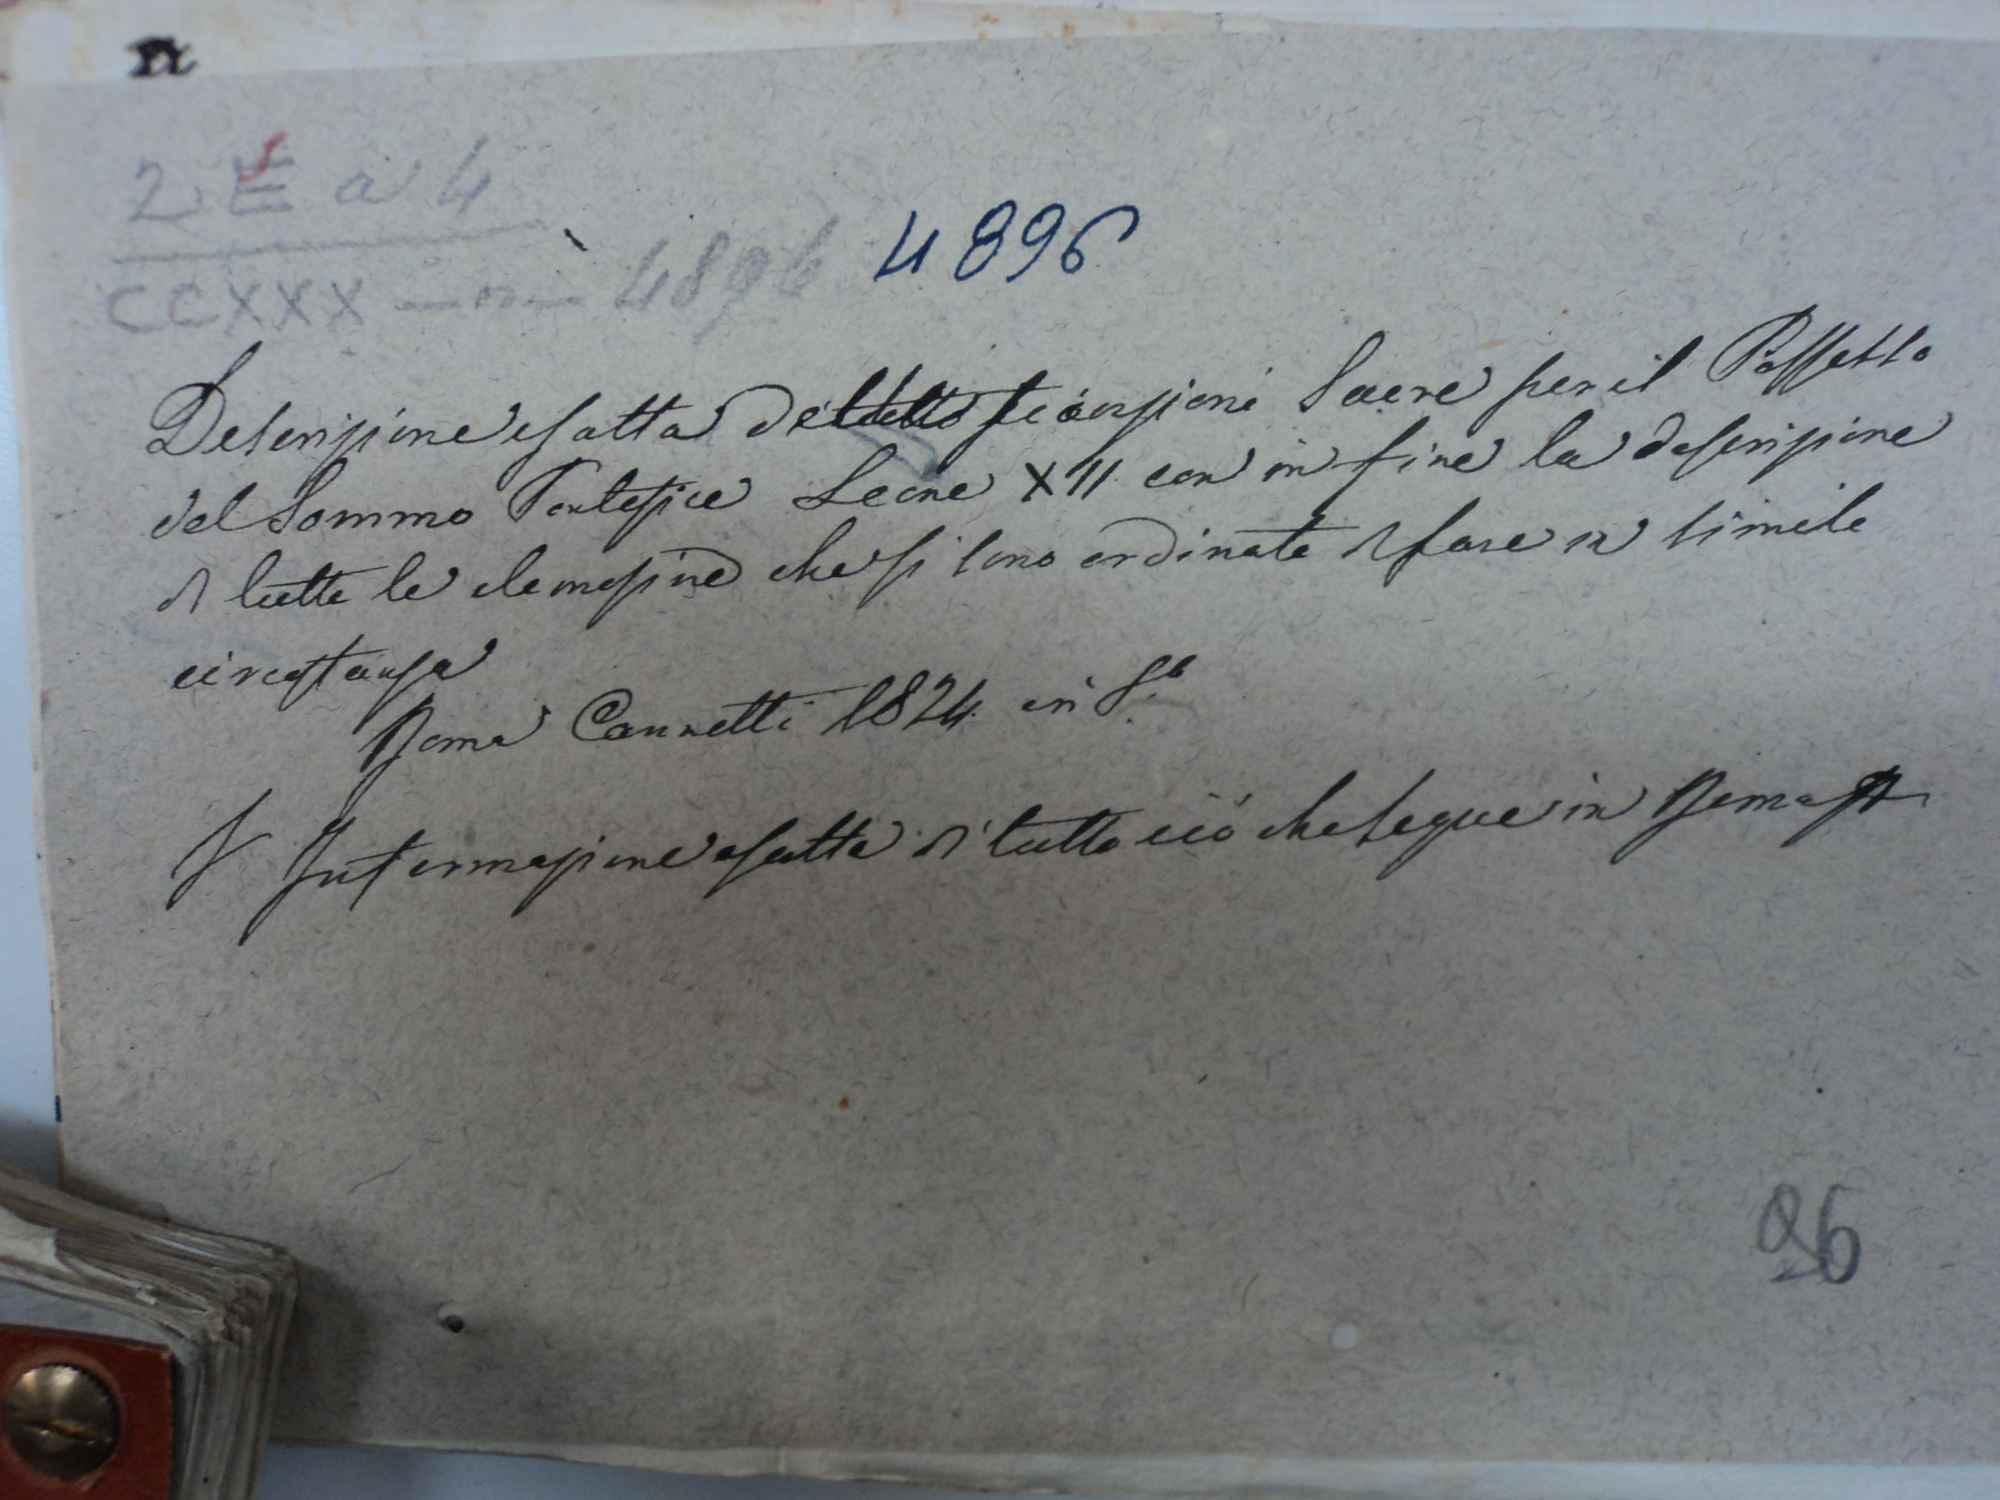 2 E a 4
CCXXX — n — 4896 4896
Descrizione esatta delle funzioni Sacre per il Possesso
del Sommo Pontefice Leone XII con in fine la descrizione
di tutte le elemosine che si sono ordinate di fare in simile
circostanza
Roma Cannetti 1824 in 8.º
V Informazione esatta di tutto ciò che segue in Roma
96